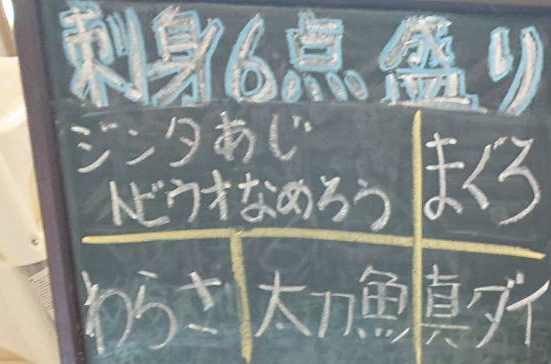 刺身6点盛り
ジンタあじ
トビウオなめろう
まぐろ
わらさ
太刀魚
真ダイ